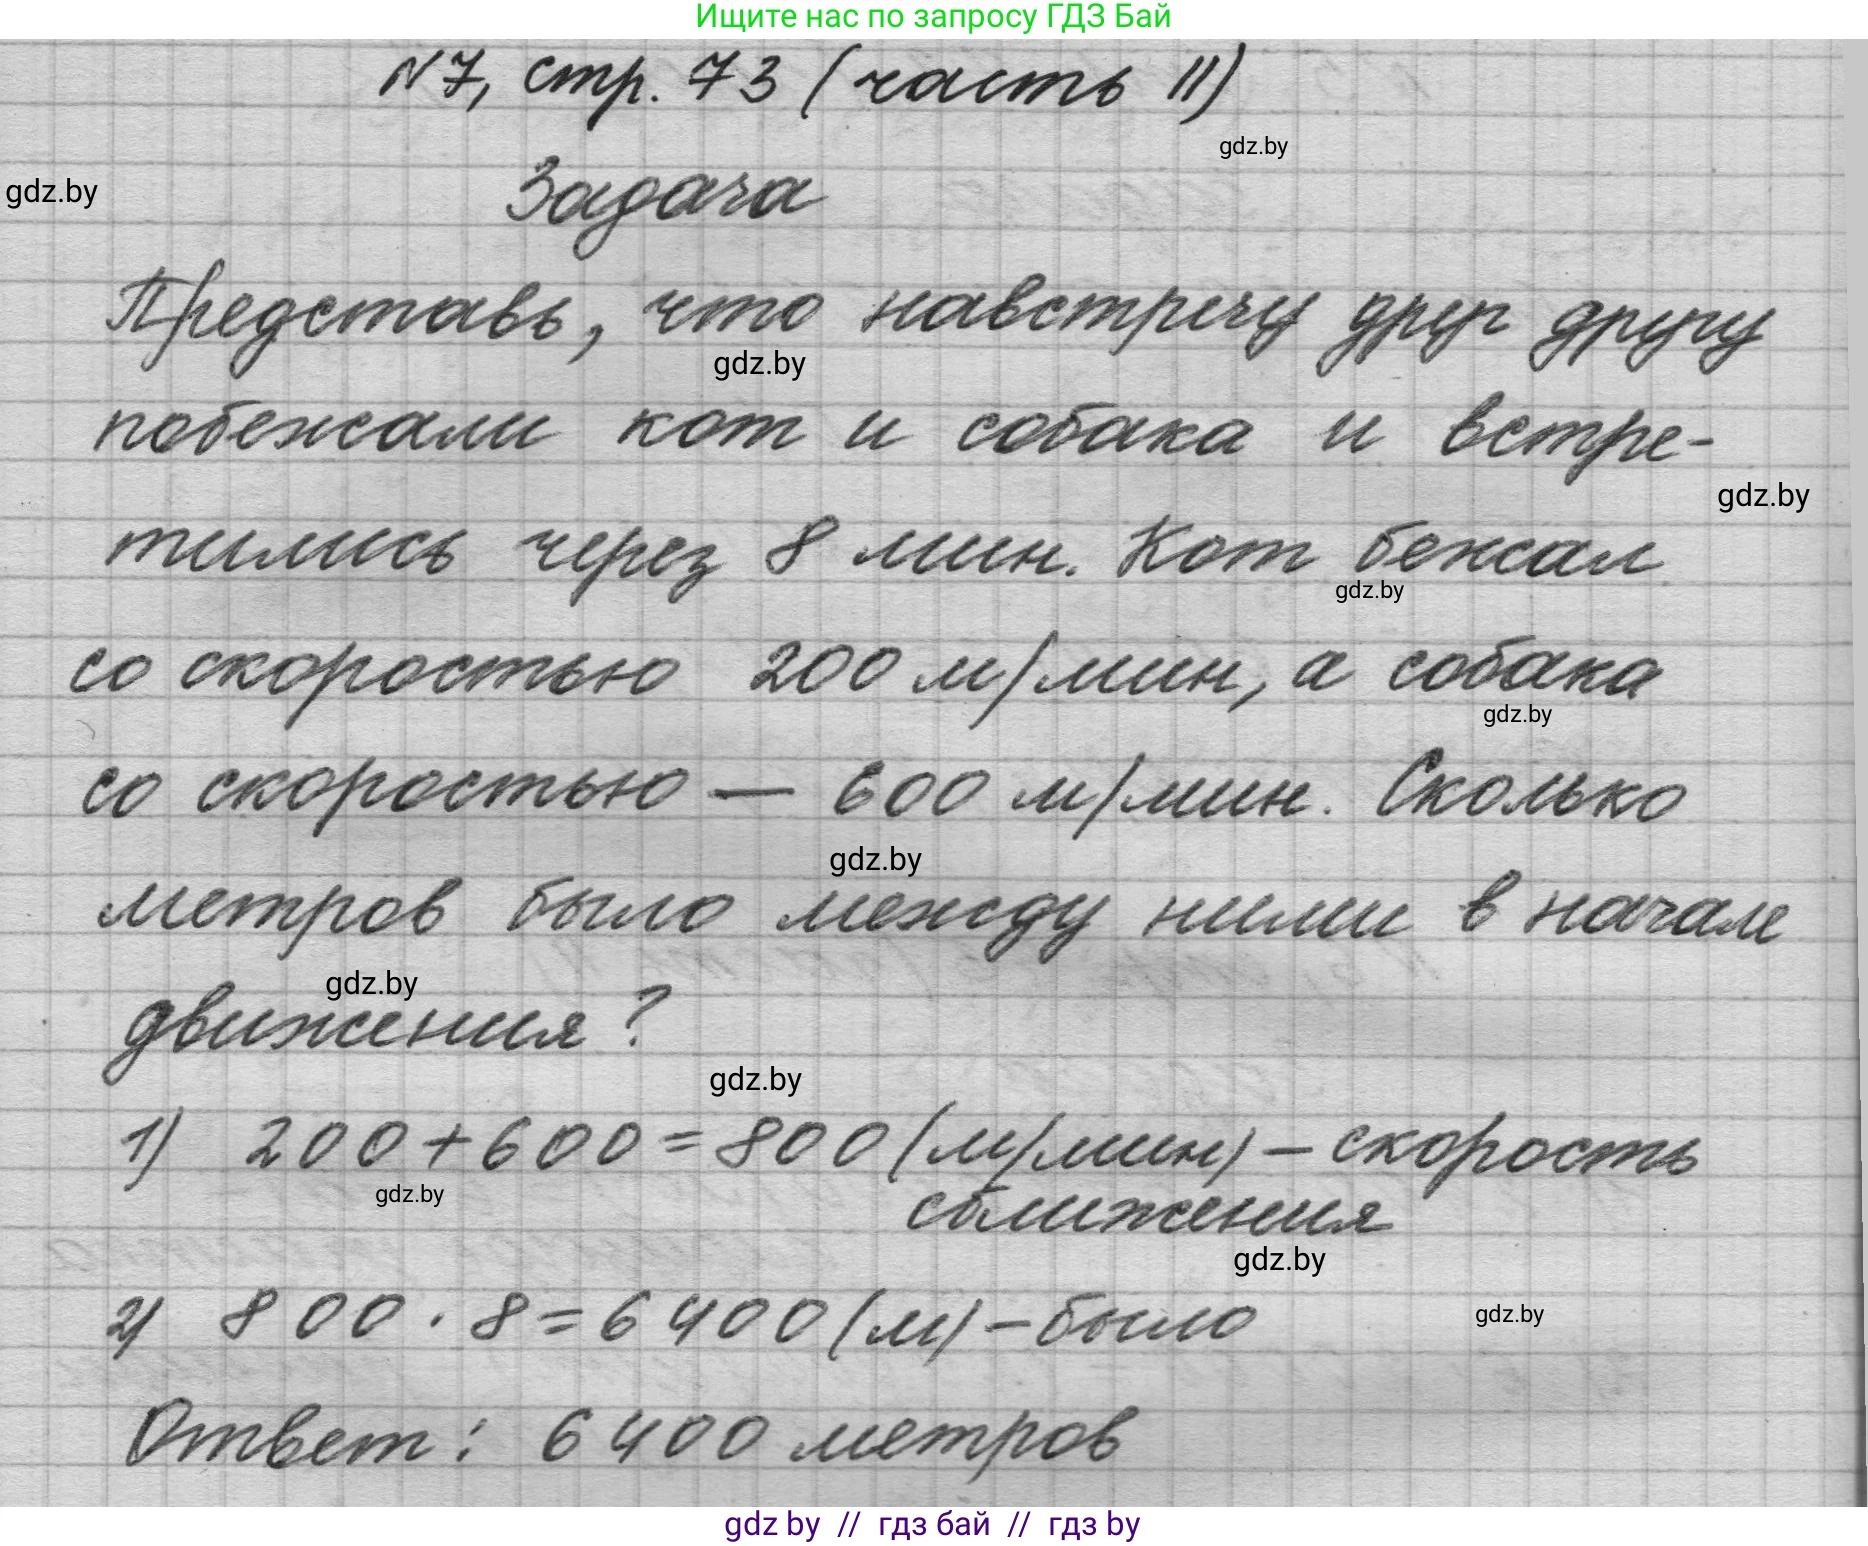 Ищите нас по запросу ГДЗ Бай
№7, стр. 73 (часть II)
gdz.by
gdz.by
Задача
Представь, что навстречу друг другу
gdz.by
побежали кот и собака и встре-
gdz.by
тились через 8 мин. Кот бежал
gdz.by
со скоростью 200 м/мин, а собака
gdz.by
со скоростью — 600 м/мин. Сколько
gdz.by
метров было между ними в начале
gdz.by
движения?
gdz.by
1) 200+600=800 (м/мин) – скорость
gdz.by
сближения
gdz.by
2) 800 · 8=6400 (м) – было
gdz.by
Ответ: 6400 метров
gdz by // гдз бай // гдз by